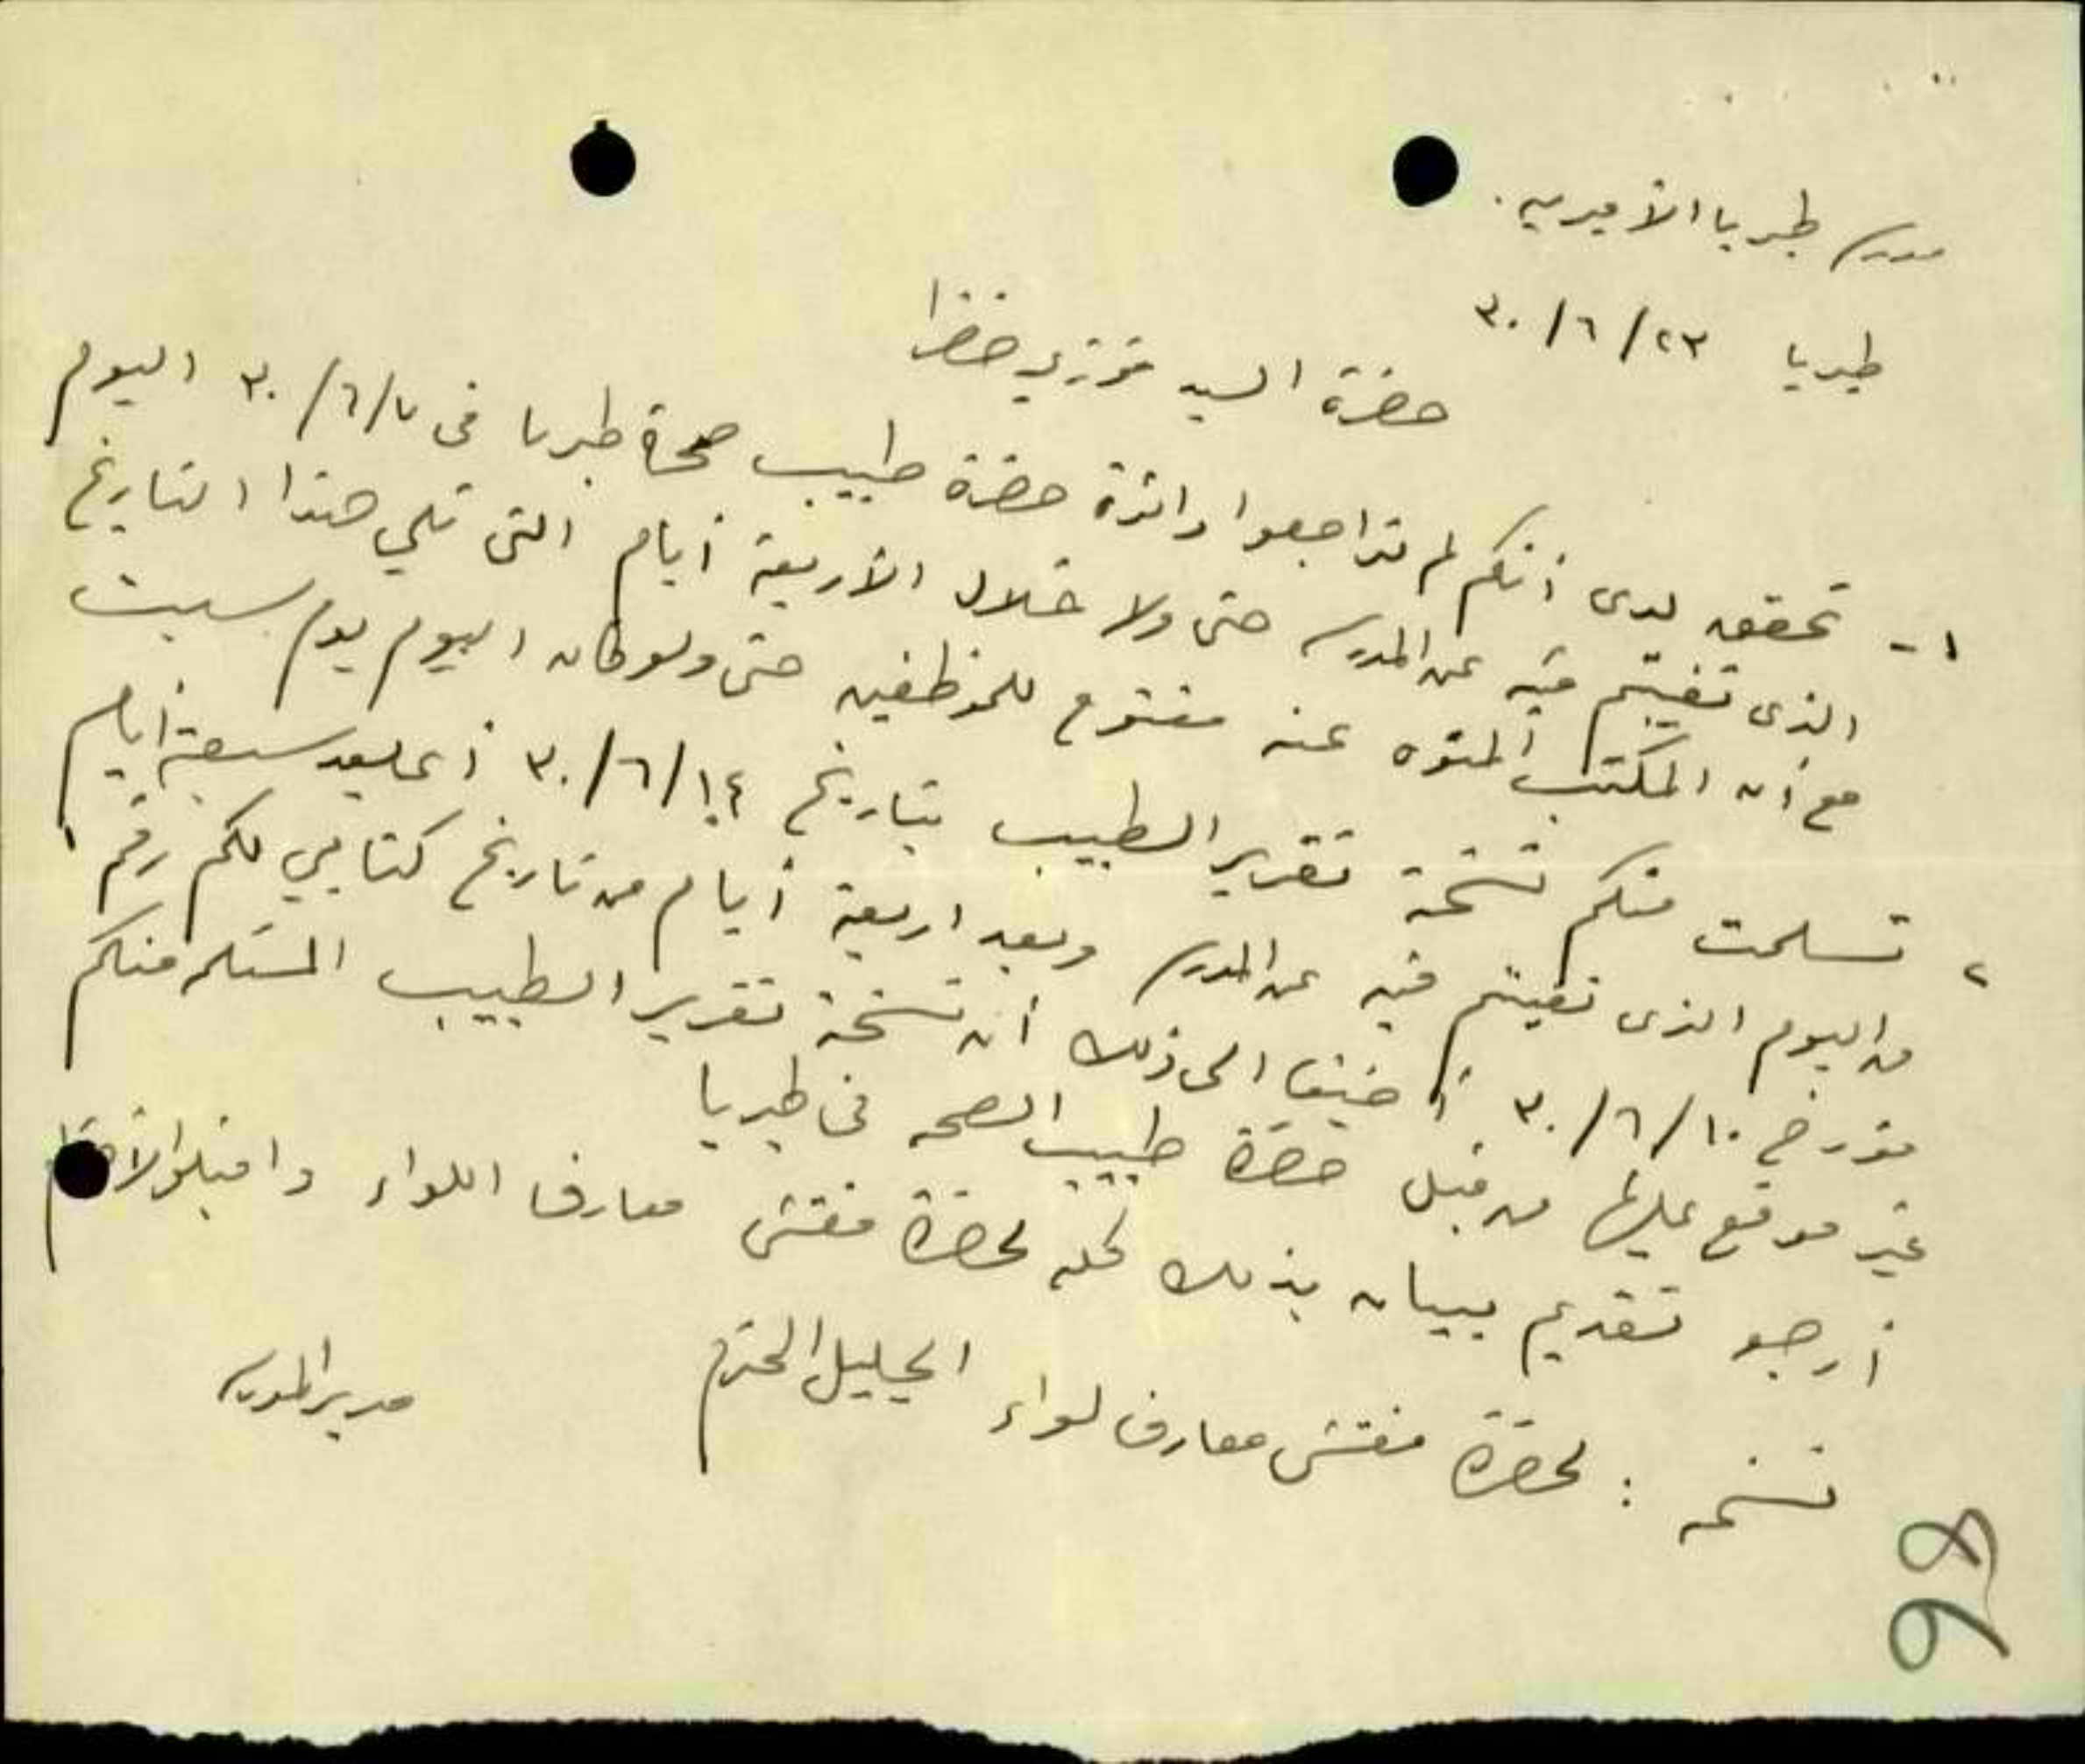 مدرسة طبريا الأميرية.
طبريا ٢٣/٦/٣٠
حضرة السيد فوزي خضرا
١- تحقق لدى أنكم لم تراجعوا دائرة حضرة طبيب صحة طبريا في ٧/٦/٣٠ اليوم
الذى تغيبتم فيه عن المدرسة حتى ولا خلال الأربعة أيام التى تلي هذا التاريخ
مع أن المكتب المنوه عنه مفتوح للموظفين حتى ولو كان اليوم يوم سبت
٢ تسلمت منكم نسخة تقرير الطبيب بتاريخ ١٤/٦/٣٠ أعلى بعد سبعة أيام
من اليوم الذى تغيبتم فيه عن المدرسة وبعد اربعة أيام من تاريخ كتابي لكم رقم ١
مؤرخ ١٠/٦/٣٠ أضيف الى ذلك أن نسخة تقرير الطبيب المستلمه منكم
غير موقع عليها من قبل حضرة طبيب الصحه في طبريا
أرجو تقديم بيان بذلك كله لحضرة مفتش معارف اللواء واقبلوا الاحترام
مدير المدرسة
نسخه : لحضرة مفتش معارف لواء الجليل المحترم
98